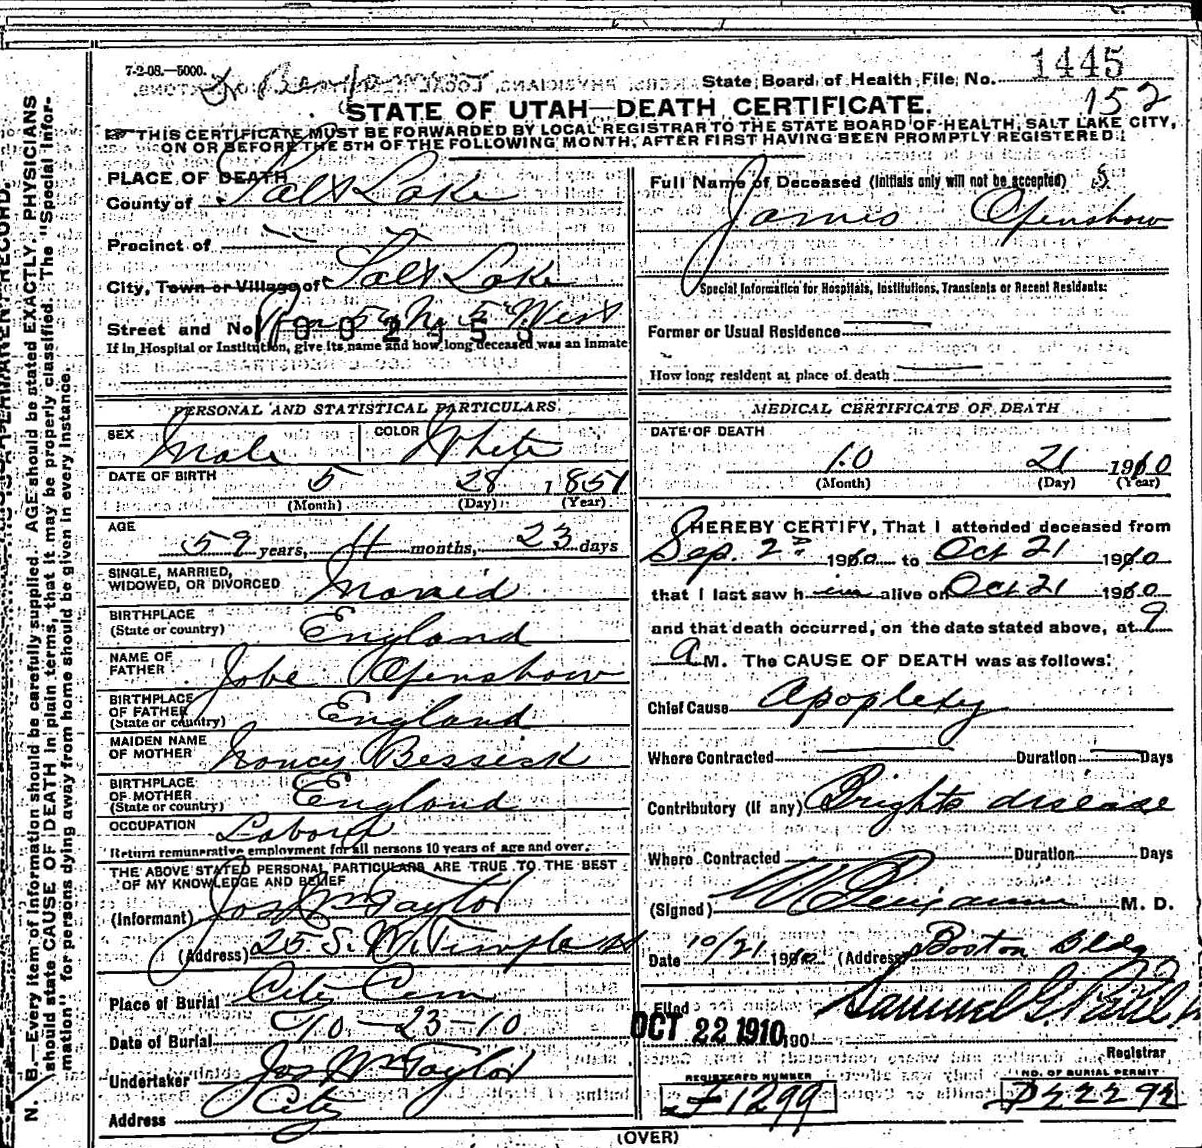 7-2-08.—5000.
State Board of Health File No. 1445
152
STATE OF UTAH—DEATH CERTIFICATE.
THIS CERTIFICATE MUST BE FORWARDED BY LOCAL REGISTRAR TO THE STATE BOARD OF HEALTH, SALT LAKE CITY,
ON OR BEFORE THE 5TH OF THE FOLLOWING MONTH, AFTER FIRST HAVING BEEN PROMPTLY REGISTERED.
PLACE OF DEATH
County of Salt Lake
Precinct of
City, Town or Village of Salt Lake
Street and No. 5 West
If in Hospital or Institution, give its name and how long deceased was an Inmate
PERSONAL AND STATISTICAL PARTICULARS.
SEX Male COLOR White
DATE OF BIRTH 5 28 1851
(Month) (Day) (Year)
AGE
59 years, 4 months, 23 days
SINGLE, MARRIED,
WIDOWED, OR DIVORCED Marrid
BIRTHPLACE
(State or country) England
NAME OF
FATHER Jobe Openshow
BIRTHPLACE
OF FATHER England
(State or country)
MAIDEN NAME
OF MOTHER Nancy Bessick
BIRTHPLACE
OF MOTHER England
(State or country)
OCCUPATION Labor
Return remunerative employment for all persons 10 years of age and over.
THE ABOVE STATED PERSONAL PARTICULARS ARE TRUE TO THE BEST
OF MY KNOWLEDGE AND BELIEF
(Informant) Jos Wm Taylor
(Address) 25 S. W. Temple st
Place of Burial City Cem
Date of Burial 10-23-10
Undertaker Jos Wm Taylor
Address City
Full Name of Deceased (Initials only will not be accepted)
James Openshow
Special Information for Hospitals, Institutions, Transients or Recent Residents:
Former or Usual Residence
How long resident at place of death
MEDICAL CERTIFICATE OF DEATH
DATE OF DEATH
10 21 1910
(Month) (Day) (Year)
I HEREBY CERTIFY, That I attended deceased from
Sep. 2d 1910 to Oct 21 1910
that I last saw him alive on Oct 21 1910
and that death occurred, on the date stated above, at 9
A M. The CAUSE OF DEATH was as follows:
Chief Cause Apoplexy
Where Contracted Duration Days
Contributory (if any) Brights disease
Where Contracted Duration Days
(Signed) W Benjamin M. D.
Date 10/21 1910 (Address) Boston Bldg
Filed Samuel G. Paul
OCT 22 1910 190
Registrar
REGISTERED NUMBER NO. OF BURIAL PERMIT
F 1299
(OVER)
N. B.—Every item of information should be carefully supplied. AGE should be stated EXACTLY. PHYSICIANS
should state CAUSE OF DEATH in plain terms, that it may be properly classified. The "Special Infor-
mation" for persons dying away from home should be given in every instance.